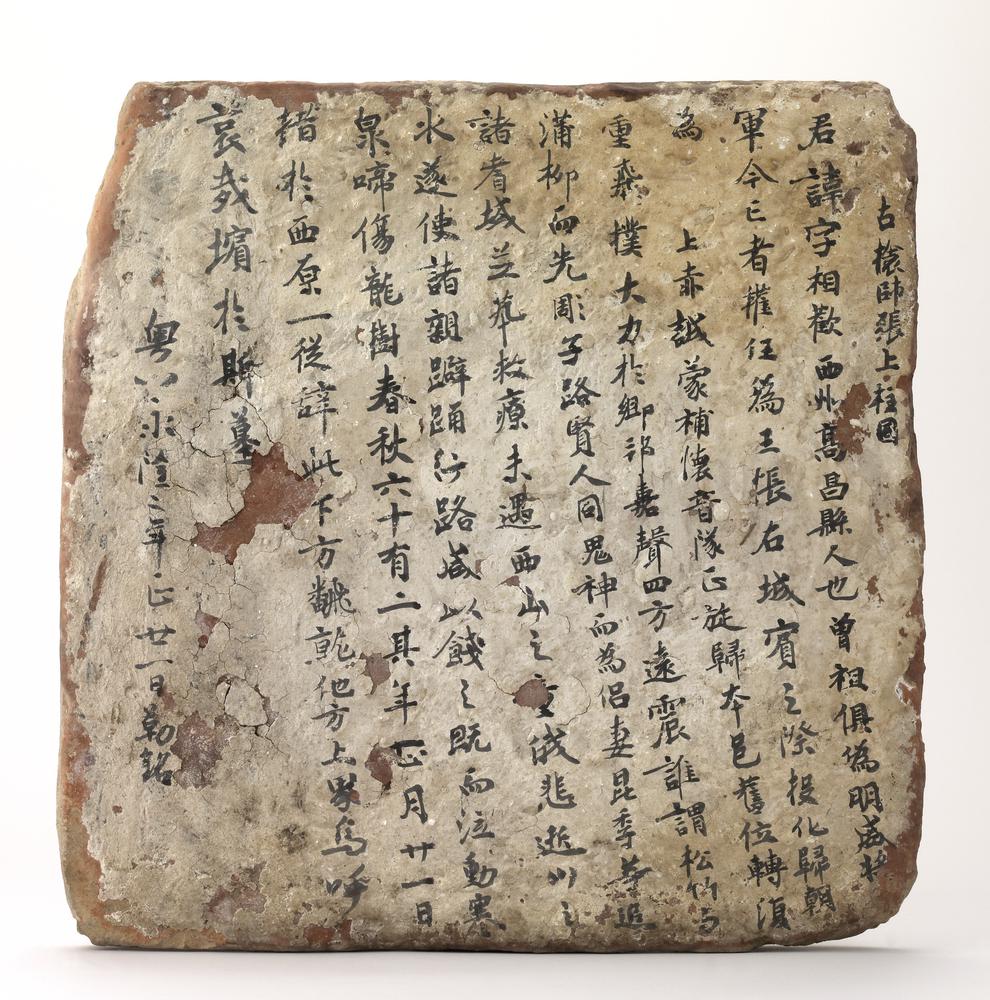 師張上柱國
君諱字相歡西州高昌縣人也曾祖俱為明威將
軍今亡者權任為王帳右城賓之際投化歸朝
為上赤誠蒙補懷音隊正旋歸本邑舊位轉須
重撲大力於鄉邦嘉聲四方遠震誰謂松竹与
蒲柳而先彫子路賢人同鬼神而為侶妻昆季等追
諸耆域並救療未遇西山之童俄悲逝川之
水遂使諸親躃踊行路咸以餞之既而泣動寒
泉啼傷龍樹春秋六十有二其年正月廿一日
措於西原一從辞此下方翻他方上界烏呼
哀哉殯於斯墓
粵以永隆二年正廿一日勒銘